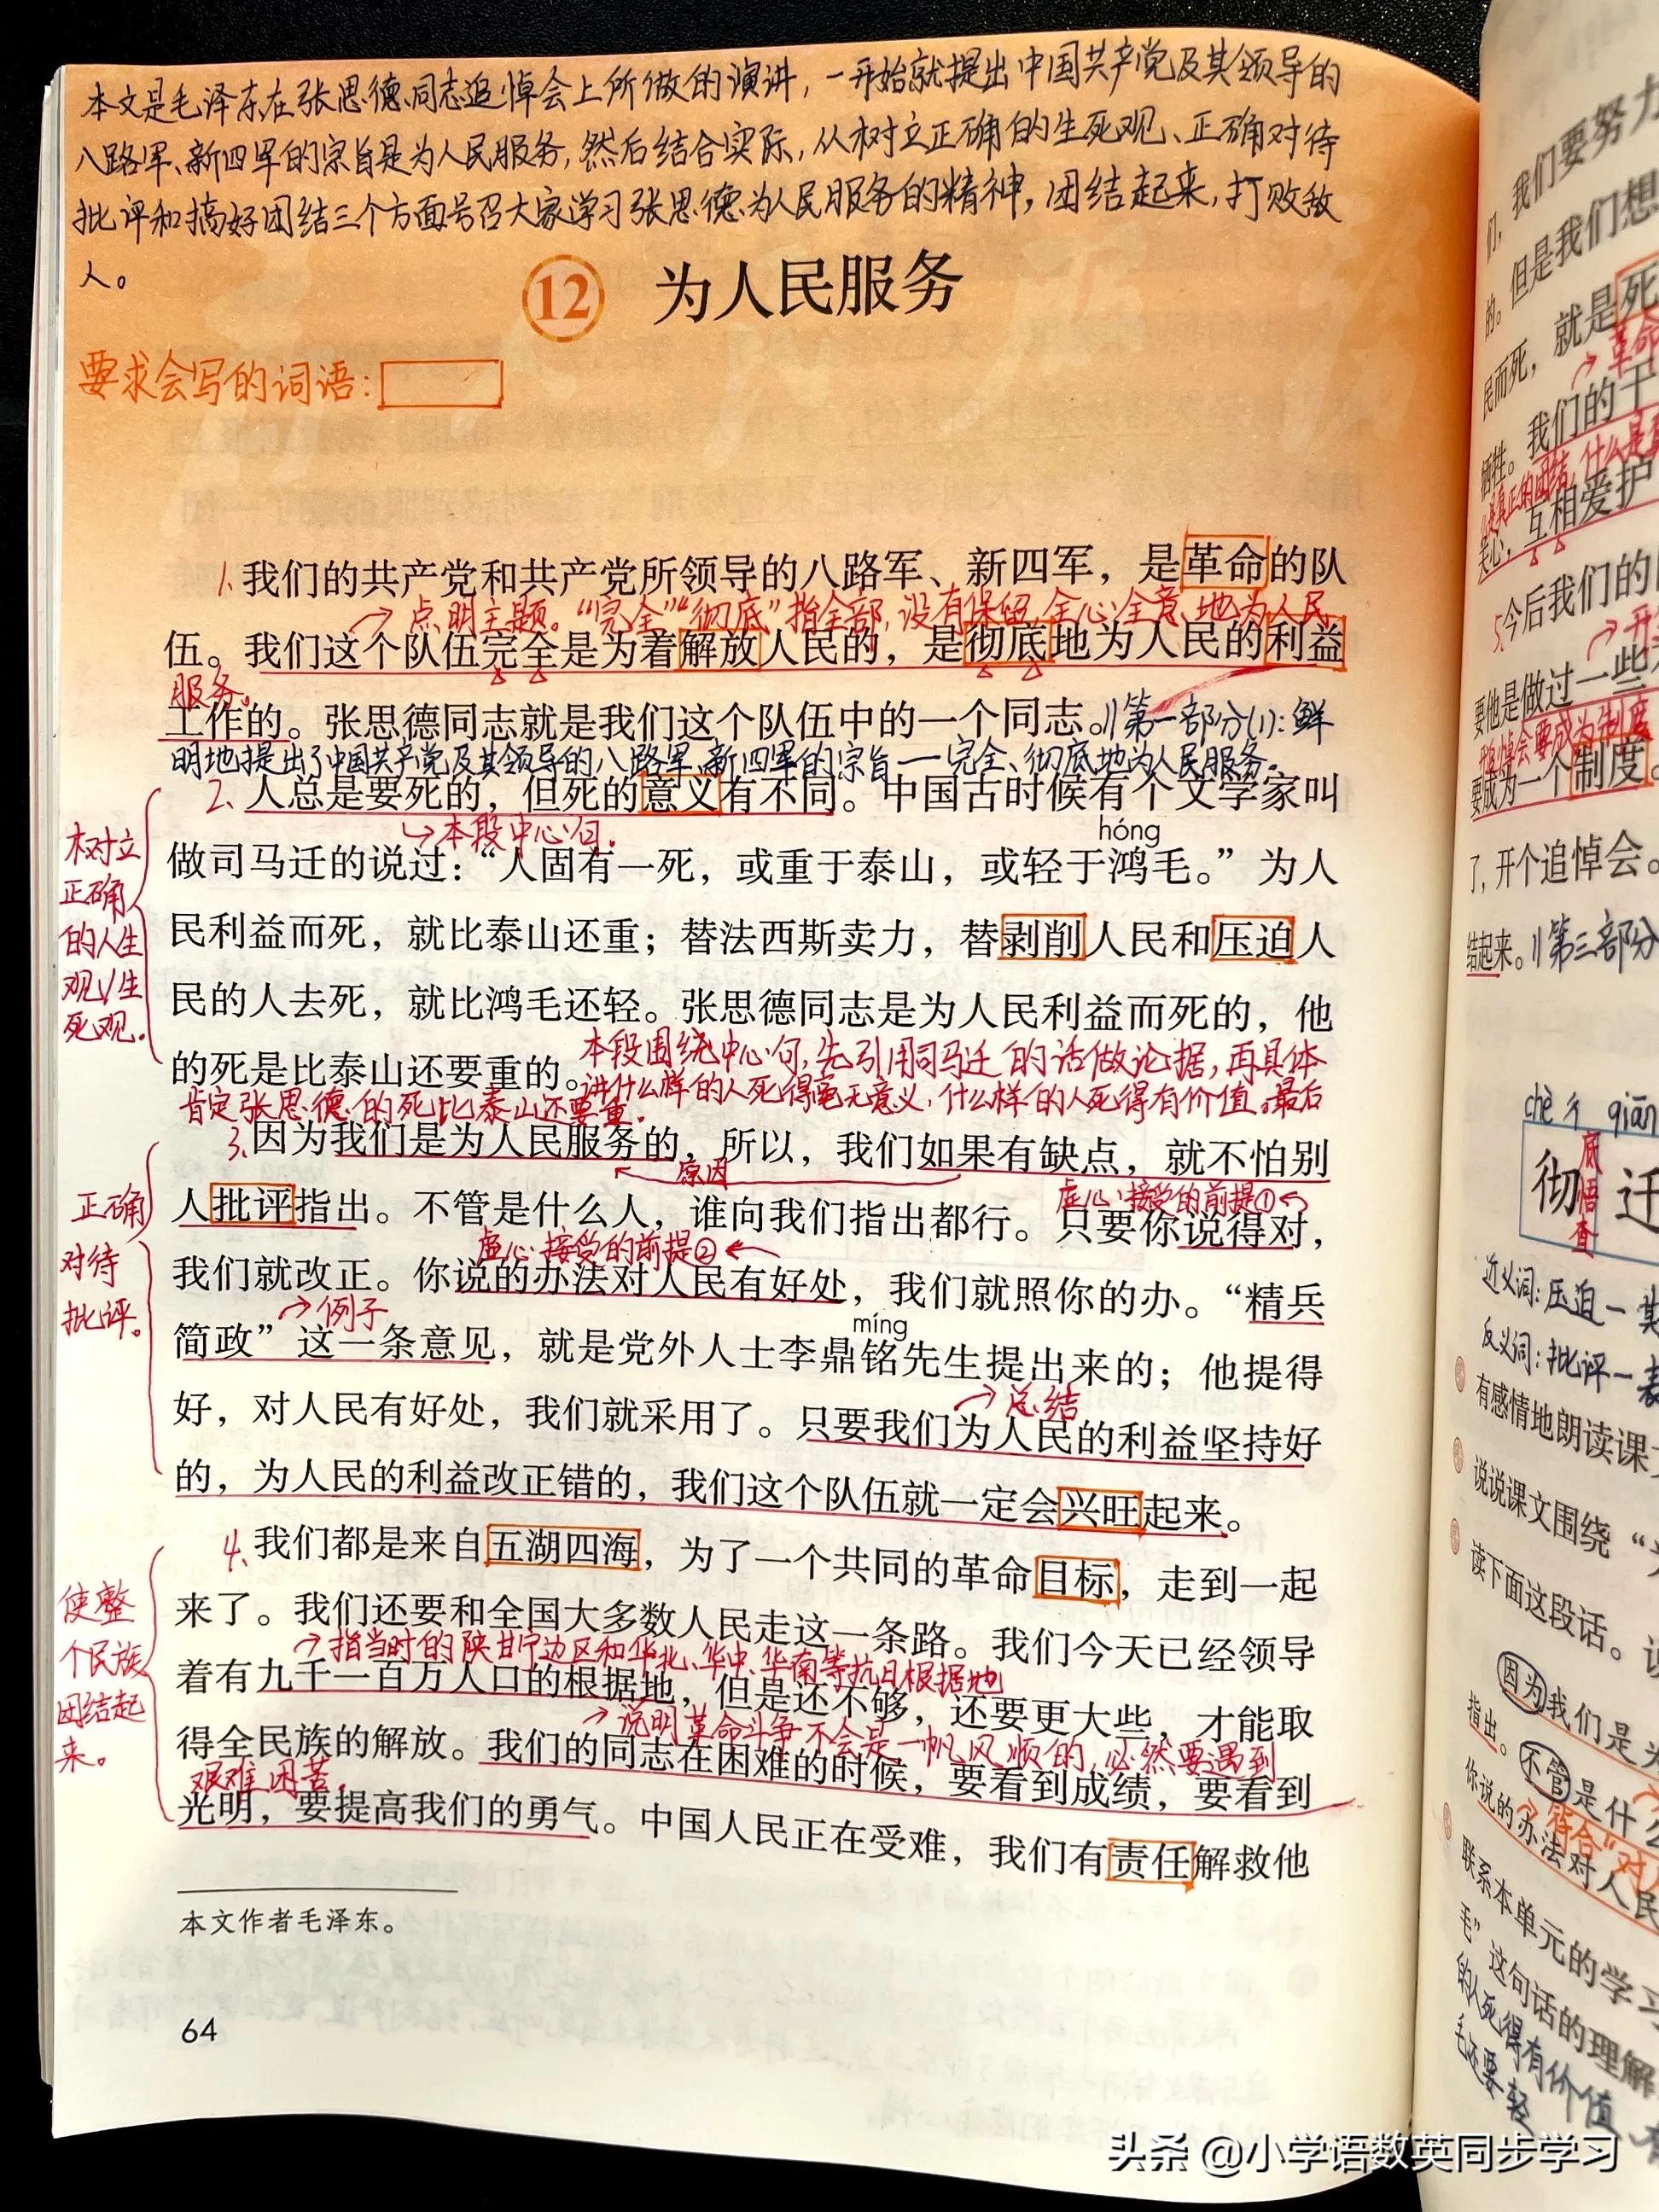 本文是毛泽东在张思德同志追悼会上所做的演讲，一开始就提出中国共产党及其领导的
八路军、新四军的宗旨是为人民服务，然后结合实际，从树立正确的生死观、正确对待
批评和搞好团结三个方面号召大家学习张思德为人民服务的精神，团结起来，打败敌
人。
12 为人民服务
要求会写的词语：
1.我们的共产党和共产党所领导的八路军、新四军，是革命的队
→点明主题。“完全”“彻底”指全部，没有保留，全心全意地为人民
伍。我们这个队伍完全是为着解放人民的，是彻底地为人民的利益
服务。
工作的。张思德同志就是我们这个队伍中的一个同志。‖第一部分(1)：鲜
明地提出了中国共产党及其领导的八路军、新四军的宗旨——完全、彻底地为人民服务。
2、人总是要死的，但死的意义有不同。中国古时候有个文学家叫
→本段中心句。
hóng
做司马迁的说过：“人固有一死，或重于泰山，或轻于鸿毛。”为人
民利益而死，就比泰山还重；替法西斯卖力，替剥削人民和压迫人
民的人去死，就比鸿毛还轻。张思德同志是为人民利益而死的，他
本段围绕中心句，先引用司马迁的话做论据，再具体
的死是比泰山还要重的。
讲什么样的人死得毫无意义，什么样的人死得有价值。最后
肯定张思德的死比泰山还要重。
树立
正确
的人生
观/生
死观。
3、因为我们是为人民服务的，所以，我们如果有缺点，就不怕别
原因
虚心接受的前提①
人批评指出。不管是什么人，谁向我们指出都行。只要你说得对，
虚心接受的前提②
我们就改正。你说的办法对人民有好处，我们就照你的办。“精兵
→例子
míng
简政”这一条意见，就是党外人士李鼎铭先生提出来的；他提得
→总结
好，对人民有好处，我们就采用了。只要我们为人民的利益坚持好
的，为人民的利益改正错的，我们这个队伍就一定会兴旺起来。
正确
对待
批评。
4、我们都是来自五湖四海，为了一个共同的革命目标，走到一起
来了。我们还要和全国大多数人民走这一条路。我们今天已经领导
→指当时的陕甘宁边区和华北、华中、华南等抗日根据地
着有九千一百万人口的根据地，但是还不够，还要更大些，才能取
→说明革命斗争不会是一帆风顺的，必然要遇到
得全民族的解放。我们的同志在困难的时候，要看到成绩，要看到
艰难困苦。
光明，要提高我们的勇气。中国人民正在受难，我们有责任解救他
使整
个民族
团结起
来。
本文作者毛泽东。
64
们，我们要努力
的。但是我们想
民而死，就是死
→革命
牺牲。我们的干
是真正的团结，什么是真
关心，互相爱护
5.今后我们的
要他是做过一些
追悼会要成为制度
要成为一个制度。
了，开个追悼会。
结起来。‖第三部分
chè qiān
彻 迁
底
悟
查
近义词：压迫—
反义词：批评—
有感情地朗读课
说说课文围绕“
读下面这段话。
因为我们是
指出。不管是什
你说的办法对人民
联系本单元的学习
毛”这句话的理解
的人死得有价值
毛还要轻
头条 @小学语数英同步学习